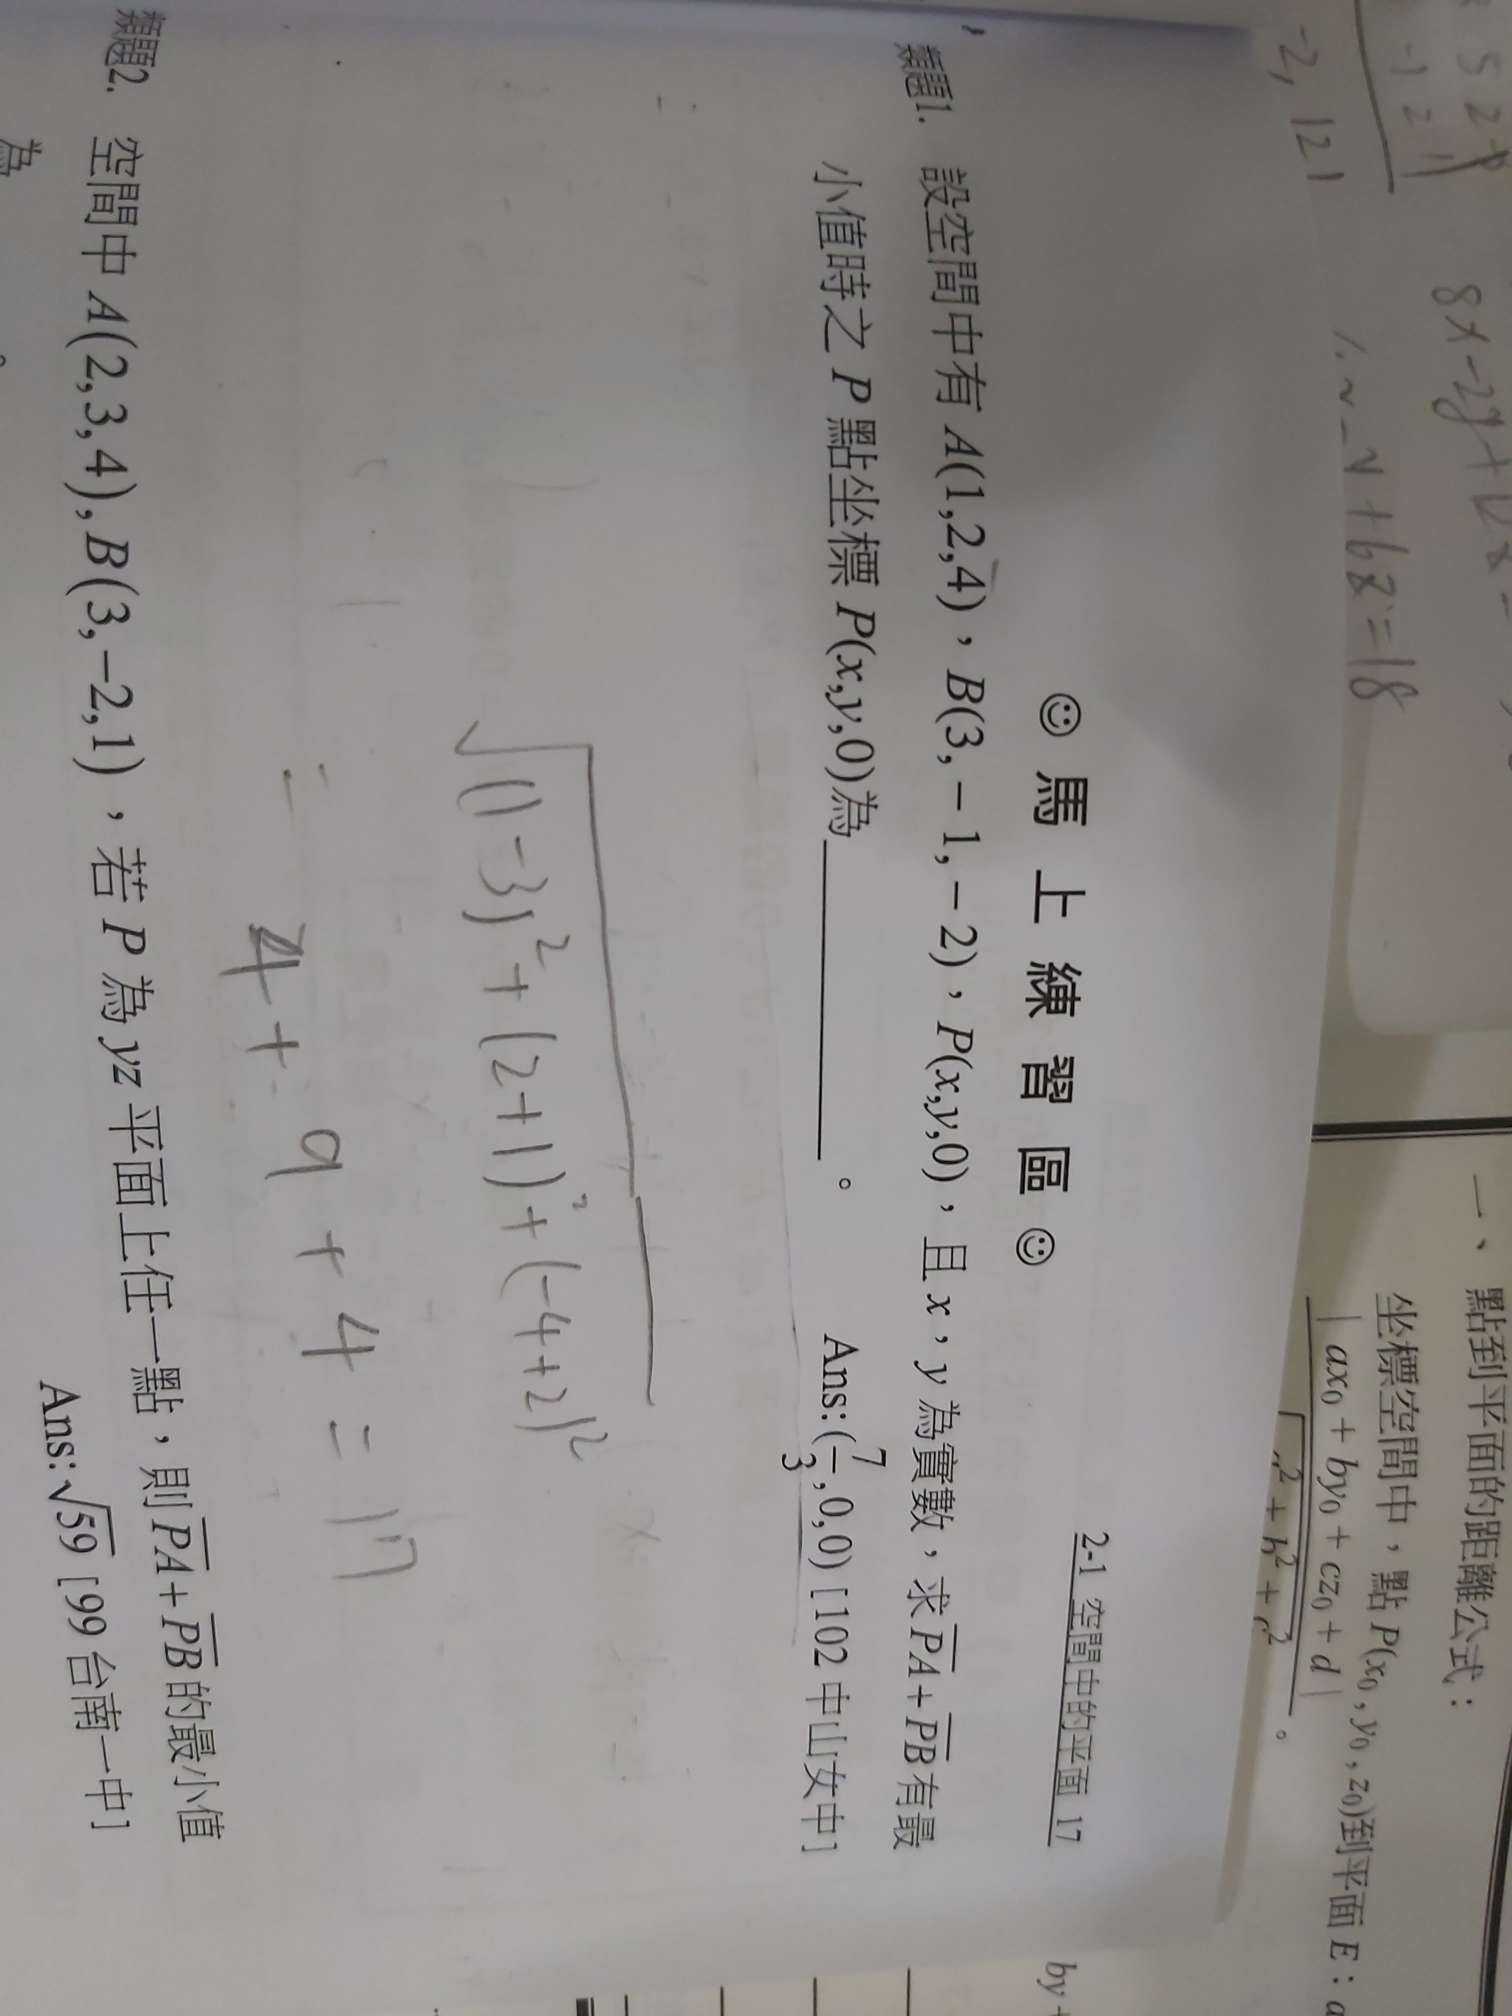 2-1 空間中的平面 17
☺ 馬 上 練 習 區 ☺
類題1. 設空間中有 A(1,2,4)，B(3,−1,−2)，P(x,y,0)，且 x，y 為實數，求 PA+PB 有最
小值時之 P 點坐標 P(x,y,0)為＿＿＿＿＿。 Ans:(7/3,0,0) [102 中山女中]
√((1-3)²+(2+1)²+(-4+2)²
= 4+9+4=17
類題2. 空間中 A(2,3,4),B(3,−2,1)，若 P 為 yz 平面上任一點，則 PA+PB 的最小值
為
Ans:√59 [99 台南一中]
一、點到平面的距離公式：
坐標空間中，點 P(x₀,y₀,z₀)到平面 E：
|ax₀+by₀+cz₀+d|
√a²+b²+c² 。
by+
-2, 12 1
+6z=18